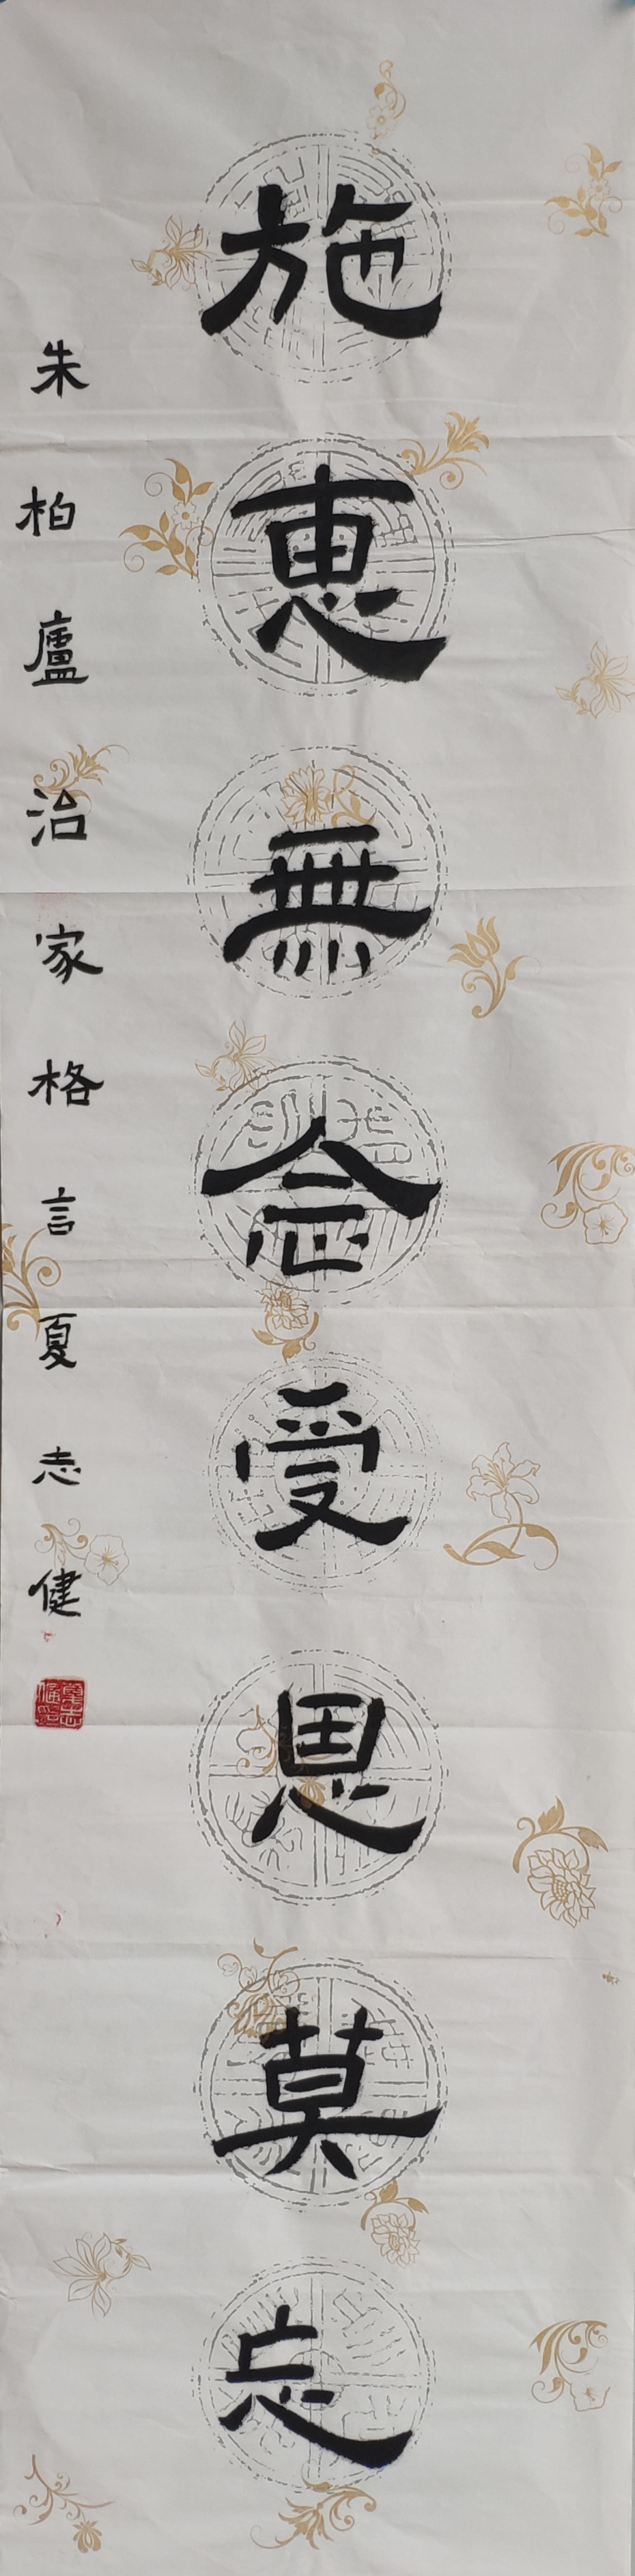 施惠無念受恩莫忘
朱柏廬治家格言夏志健